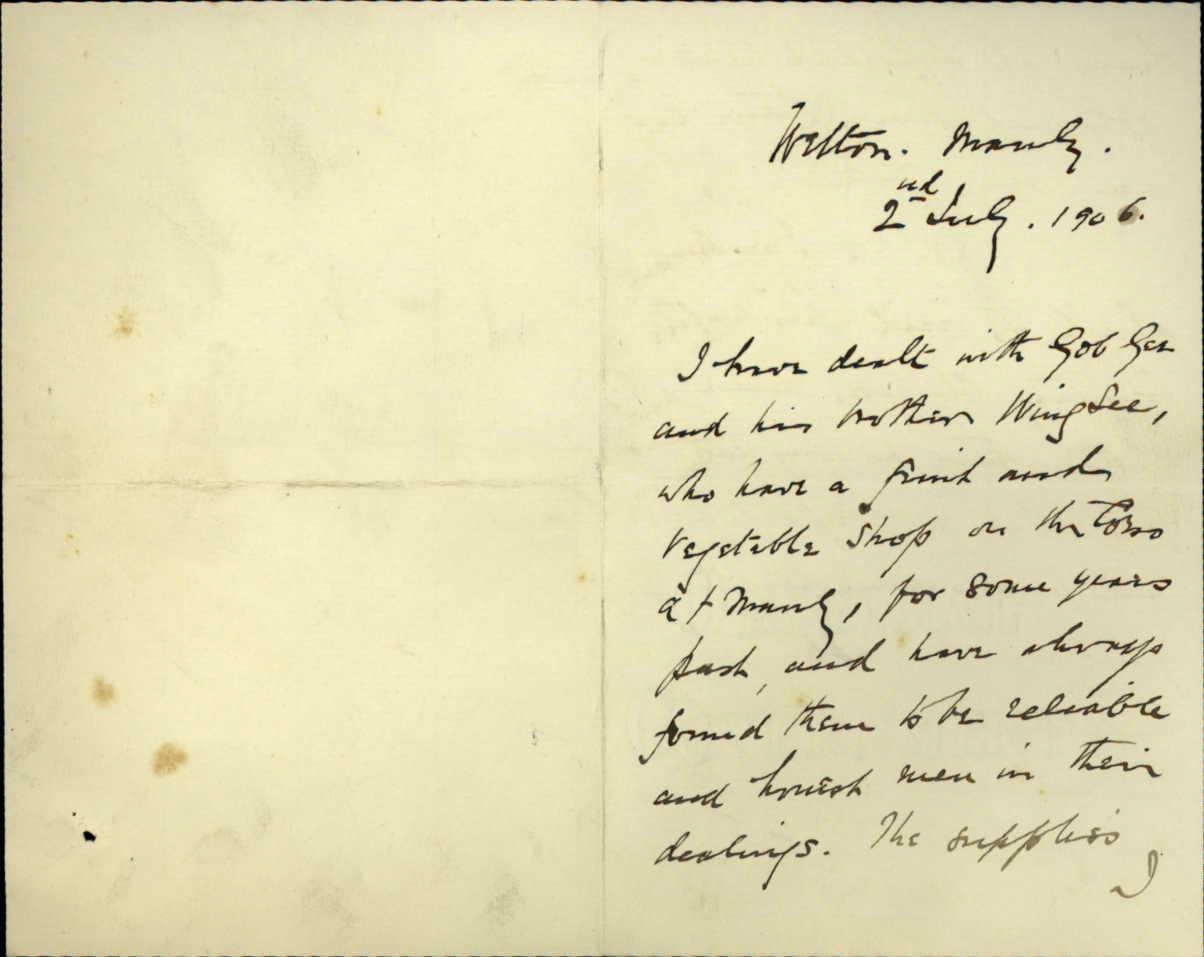 Wilton. Manly.
2nd July. 1906.
I have dealt with Gob Gee
and his brother Wing See,
who have a fruit and
vegetable shop on the Corso
at Manly, for some years
past, and have always
found them to be reliable
and honest men in their
dealings. The supplies
I